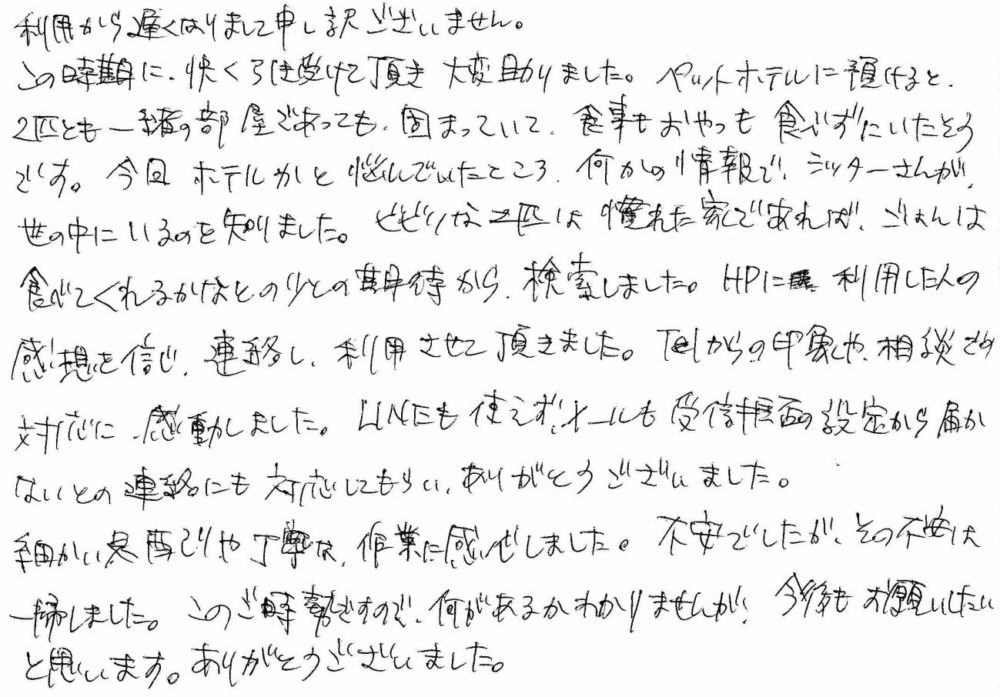 利用から遅くなりまして申し訳ございません。
この時期に、快く引き受けて頂き 大変助かりました。ペットホテルに預けると、
2匹とも一緒の部屋であっても、固まっていて、食事もおやつも食べずにいたそう
です。今回 ホテルかと悩んでいたところ、何かの情報で、シッターさんが、
世の中にいるのを知りました。ビビリな二匹は 慣れた家であれば、ごはんは
食べてくれるかなとの少しの期待から、検索しました。HPに 利用した人の
感想を信じ、連絡し、利用させて頂きました。Telからの印象や、相談での
対応に、感動しました。LINEも使えず、メールも受信拒否の設定から届か
ないとの連絡にも対応してもらい、ありがとうございました。
細かい気配りや丁寧な、作業に感心しました。不安でしたが、その不安は
一掃しました。このご時勢ですので、何があるかわかりませんが、今後もお願いしたい
と思います。ありがとうございました。